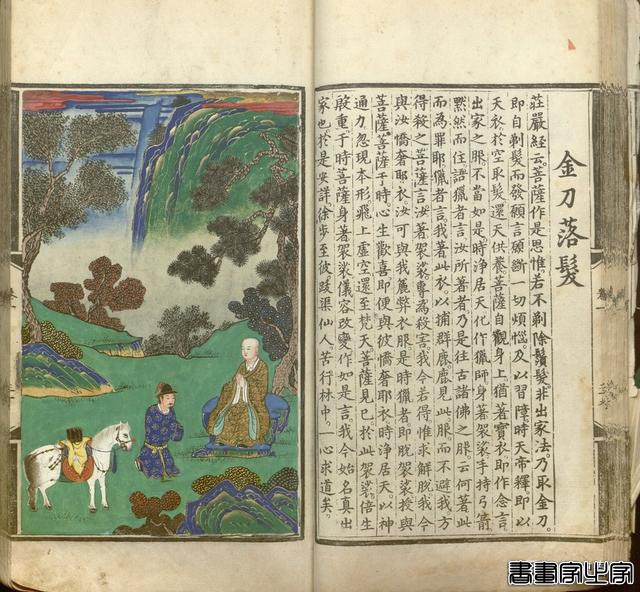 金刀落髮
莊嚴經云。菩薩作是思惟。若不剃除鬚髮。非出家法。乃取金刀。
即自剃髮。而發願言。願斷一切煩惱。及以習障。時天帝釋。即以
天衣。於空取髮。還天供養。菩薩自觀身上。猶著寶衣。即作念言。
出家之服。不當如是。時淨居天。化作獵師。身著袈裟。手持弓箭
默然而住。語獵者言。汝所著者。乃是往古諸佛之服。云何著此
而為罪耶。獵者言。我著此衣。以捕群鹿。鹿見此服。而不避我。方
得殺之。菩薩言。汝著袈裟。專為殺害。我今若得。惟求解脫。我今
與汝憍奢耶衣。汝可與我麁弊衣服。是時獵者。即脫袈裟。授與
菩薩。菩薩于時。心生歡喜。即便與彼憍奢耶衣。時淨居天。以神
通力。忽現本形。飛上虛空。還至梵天。菩薩見已。於此袈裟。倍生
殷重。于時菩薩身著袈裟。儀容改變。作如是言。我今始名真出
家也。於是安詳徐步。至彼跋渠仙人苦行林中。一心求道矣。